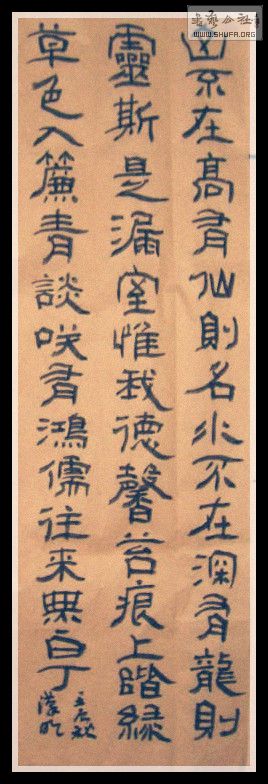 山不在高有仙則名水不在深有龍則
靈斯是漏室惟我德馨苔痕上階緑
草色入簾青談咲有鴻儒往來無白丁
壬辰秋
書藝公社
WWW.SHUFA.ORG